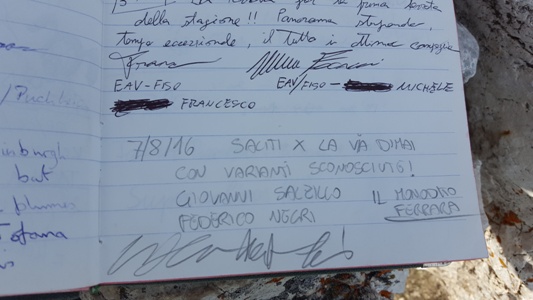 per la sua prima
della stagione!! Panorama stupendo,
tempo eccezionale, il tutto in ottima compagnia
EAV-FISO
EAV/FISO - MICHELE
FRANCESCO
7/8/16 SALITI X LA VIA DIMAI
CON VARIANTI SCONOSCIUTE!
GIOVANNI SALZILLO
FEDERICO NEGRI
IL
FERRARA
inburgh
but
plumes
Tofana